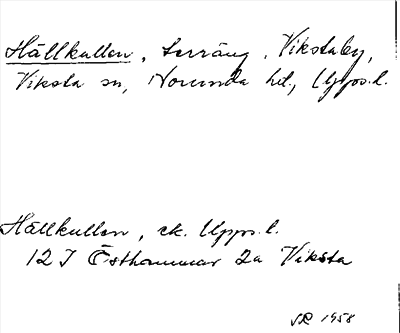 Hällkullen, terräng, Vikstaby,
Viksta sn, Norunda hd, Upps. l.
Hällkullen, ek. Upps. l.
12 I Östhammar 2a Viksta
SR 1958